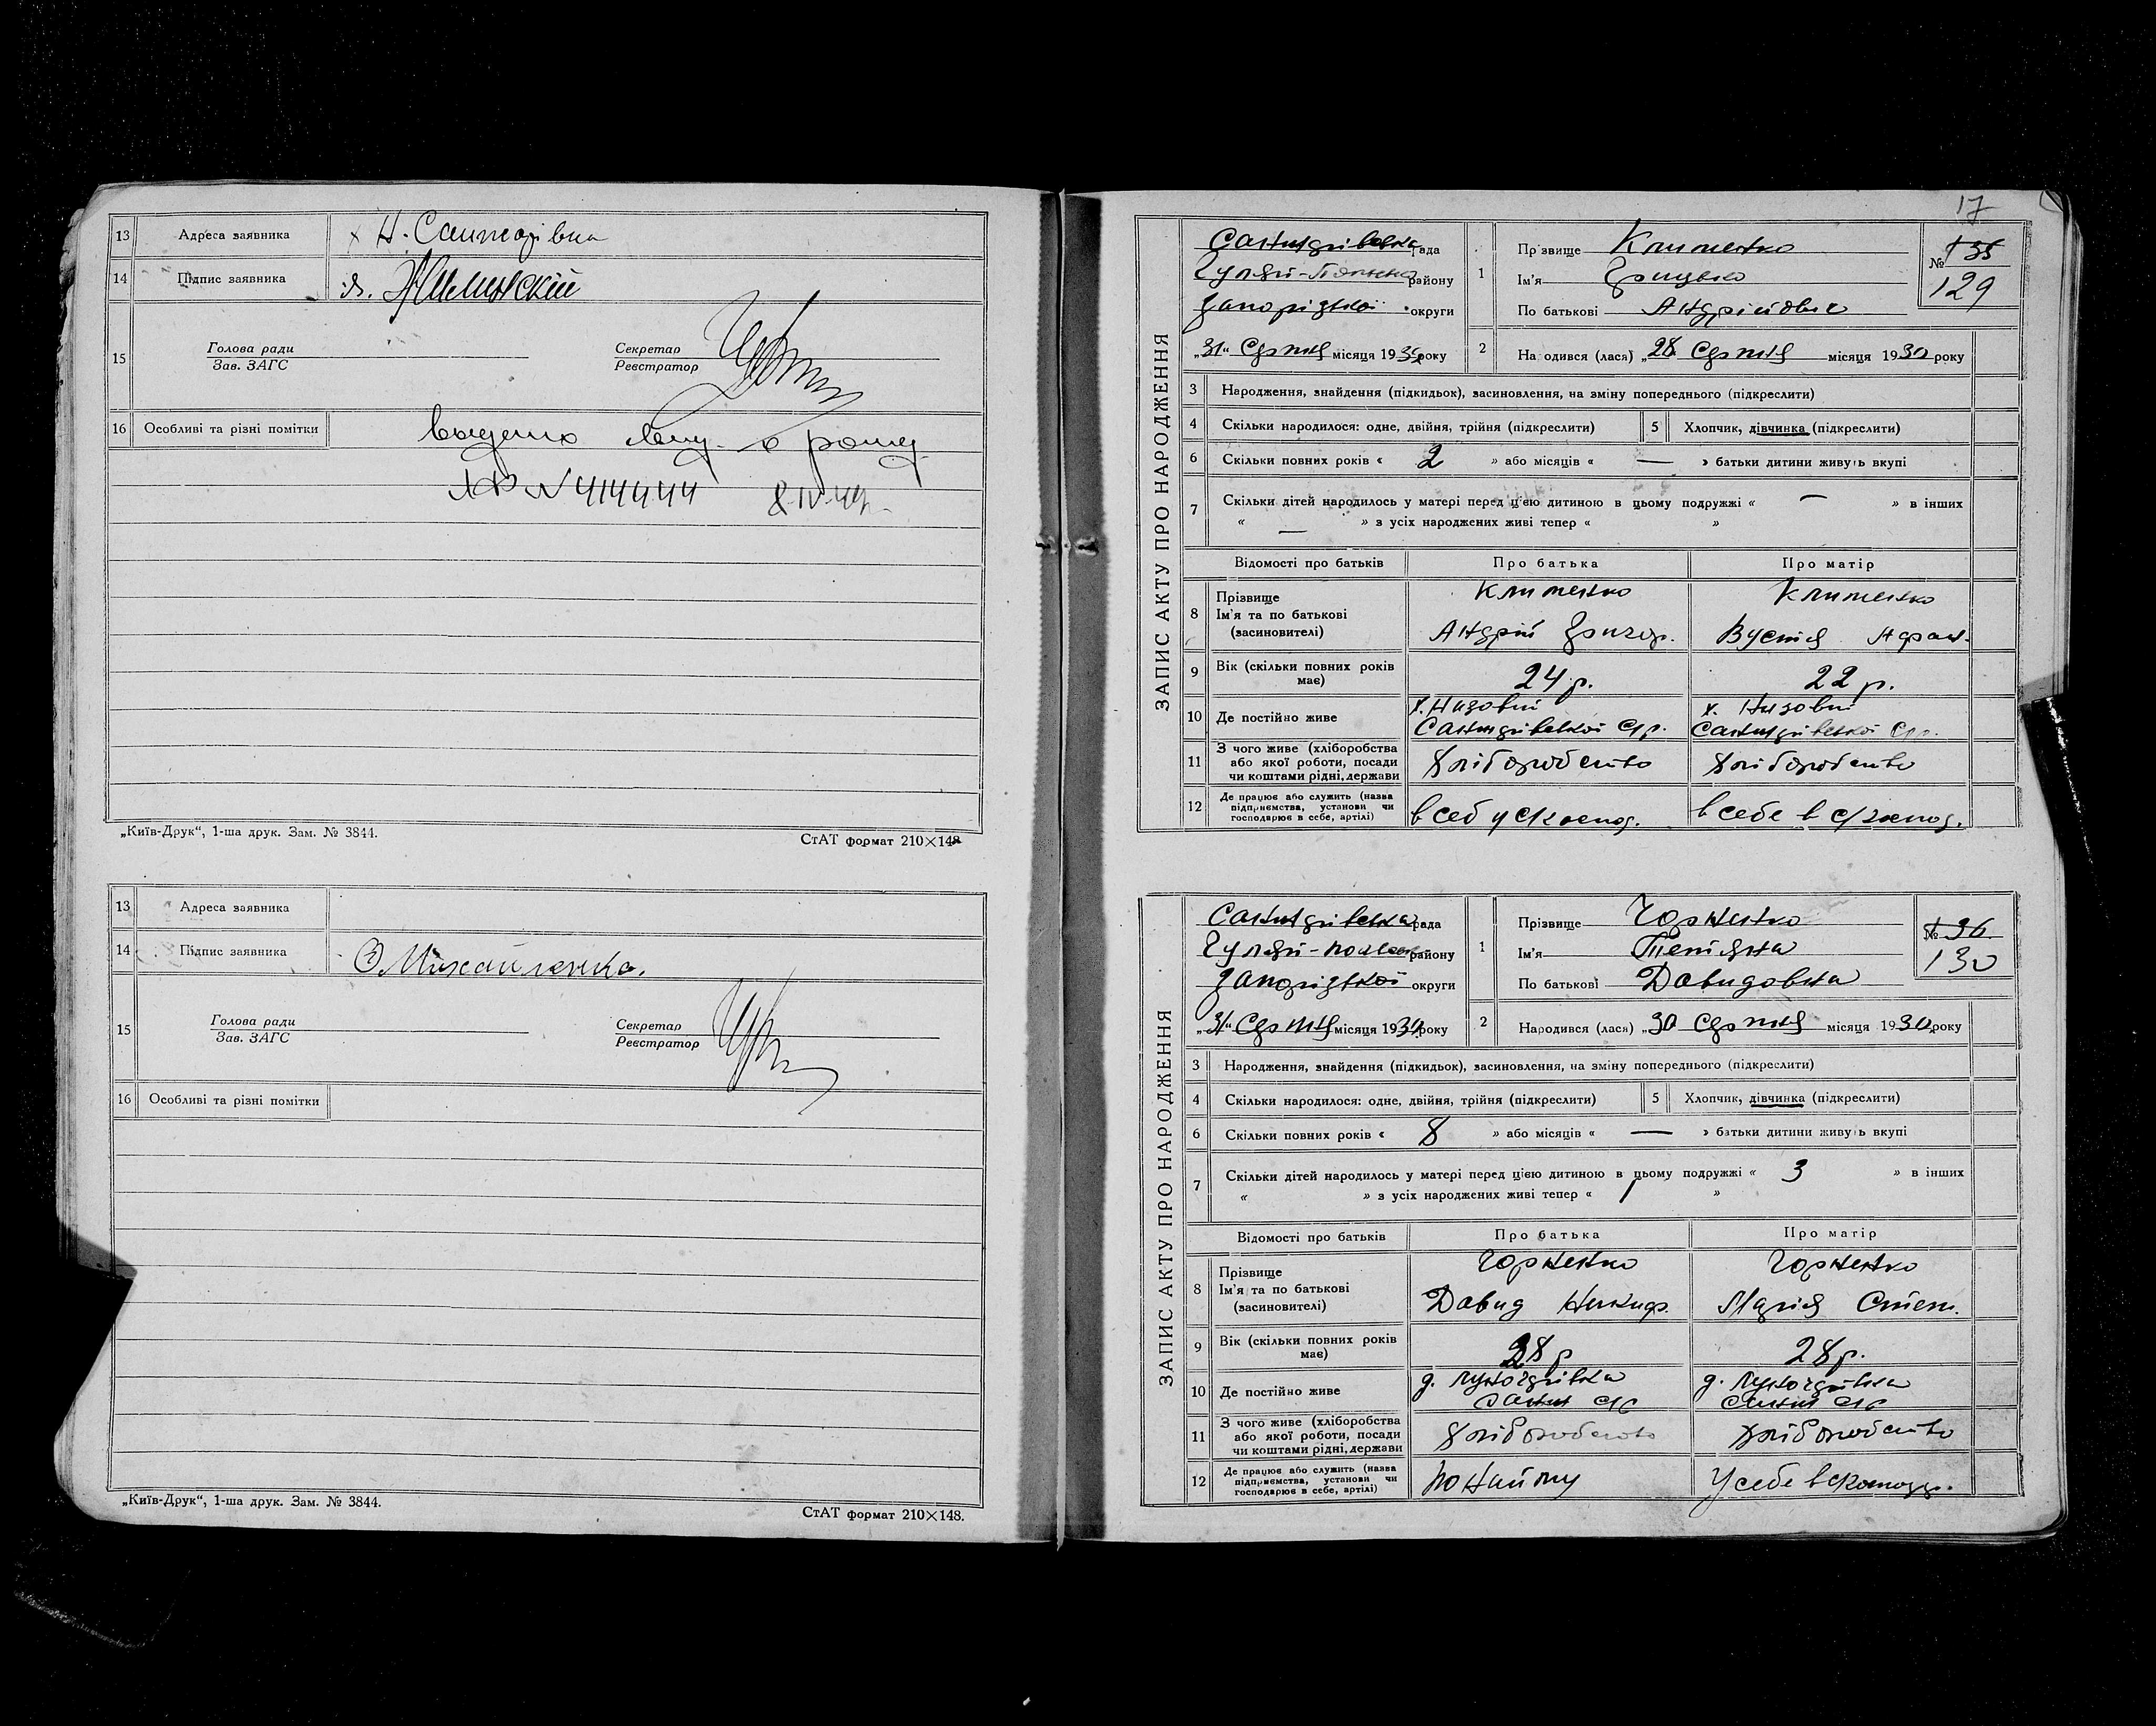 13 Адреса заявника х Н. Санжарівка
14 Підпис заявника
15 Голова ради Секретар
Зав. ЗАГС Реєстратор
16 Особливі та різні помітки
№ 414444 8-IV-44
„Київ-Друк“, 1-ша друк. Зам. № 3844. СтАТ формат 210×148
13 Адреса заявника
14 Підпис заявника Михайленко.
15 Голова ради Секретар
Зав. ЗАГС Реєстратор
16 Особливі та різні помітки
„Київ-Друк“, 1-ша друк. Зам. № 3844. СтАТ формат 210×148.
17
ЗАПИС АКТУ ПРО НАРОДЖЕННЯ
рада
Гуляй-Пільськ району
Запорізької округи
„31“ Серпня місяця 1930 року
1 Прізвище Клименко
Ім'я Грицько
По батькові Андрійович
№ 135
129
2 Народився (лася) „28 Серпня місяця 1930 року
3 Народження, знайдення (підкидьок), засиновлення, на зміну попереднього (підкреслити)
4 Скільки народилося: одне, двійня, трійня (підкреслити) 5 Хлопчик, дівчинка (підкреслити)
6 Скільки повних років « 2 » або місяців « — » батьки дитини живуть вкупі
7 Скільки дітей народилось у матері перед цією дитиною в цьому подружжі « — » в інших
« — » з усіх народжених живі тепер « »
Відомості про батьків Про батька Про матір
8 Прізвище Клименко Клименко
Ім'я та по батькові
(засиновителі) Андрій Григор. Вустя
9 Вік (скільки повних років має) 24 р. 22 р.
10 Де постійно живе х. Низовий х. Низовий
11 З чого живе (хліборобства або якої роботи, посади чи коштами рідні, держави Хліборобство Хліборобство
12 Де працює або служить (назва підприємства, установи чи господарює в себе, артілі) в себе
ЗАПИС АКТУ ПРО НАРОДЖЕННЯ
рада
Гуляй-Поль району
Запорізької округи
„31“ Серпня місяця 1930 року
1 Прізвище Чорненко
Ім'я Тетяна
По батькові Давидовна
№ 136
130
2 Народився (лася) „30 Серпня місяця 1930 року
3 Народження, знайдення (підкидьок), засиновлення, на зміну попереднього (підкреслити)
4 Скільки народилося: одне, двійня, трійня (підкреслити) 5 Хлопчик, дівчинка (підкреслити)
6 Скільки повних років « 8 » або місяців « — » батьки дитини живуть вкупі
7 Скільки дітей народилось у матері перед цією дитиною в цьому подружжі « 3 » в інших
« » з усіх народжених живі тепер « 1 »
Відомості про батьків Про батька Про матір
8 Прізвище Чорненко Чорненко
Ім'я та по батькові
(засиновителі) Давид Никиф. Марія Степ.
9 Вік (скільки повних років має) 28 р 28 р.
10 Де постійно живе
11 З чого живе (хліборобства або якої роботи, посади чи коштами рідні, держави Хліборобство Хліборобство
12 Де працює або служить (назва підприємства, установи чи господарює в себе, артілі) по найму У себе